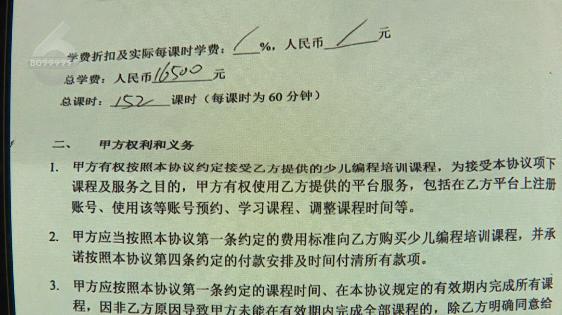 BO99999
学费折扣及实际每课时学费: / %, 人民币 / 元
总学费: 人民币16500元
总课时: 152 课时 (每课时为 60 分钟)
二、 甲方权利和义务
1. 甲方有权按照本协议约定接受乙方提供的少儿编程培训课程, 为接受本协议项下
课程及服务之目的, 甲方有权使用乙方提供的平台服务, 包括在乙方平台上注册
账号、使用该等账号预约、学习课程、调整课程时间等。
2. 甲方应当按照本协议第一条约定的费用标准向乙方购买少儿编程培训课程, 并承
诺按照本协议第四条约定的付款安排及时间付清所有款项。
3. 甲方应按照本协议第一条约定的课程时间、在本协议规定的有效期内完成所有课
程, 因非乙方原因导致甲方未能在有效期内完成全部课程的, 除乙方明确同意给